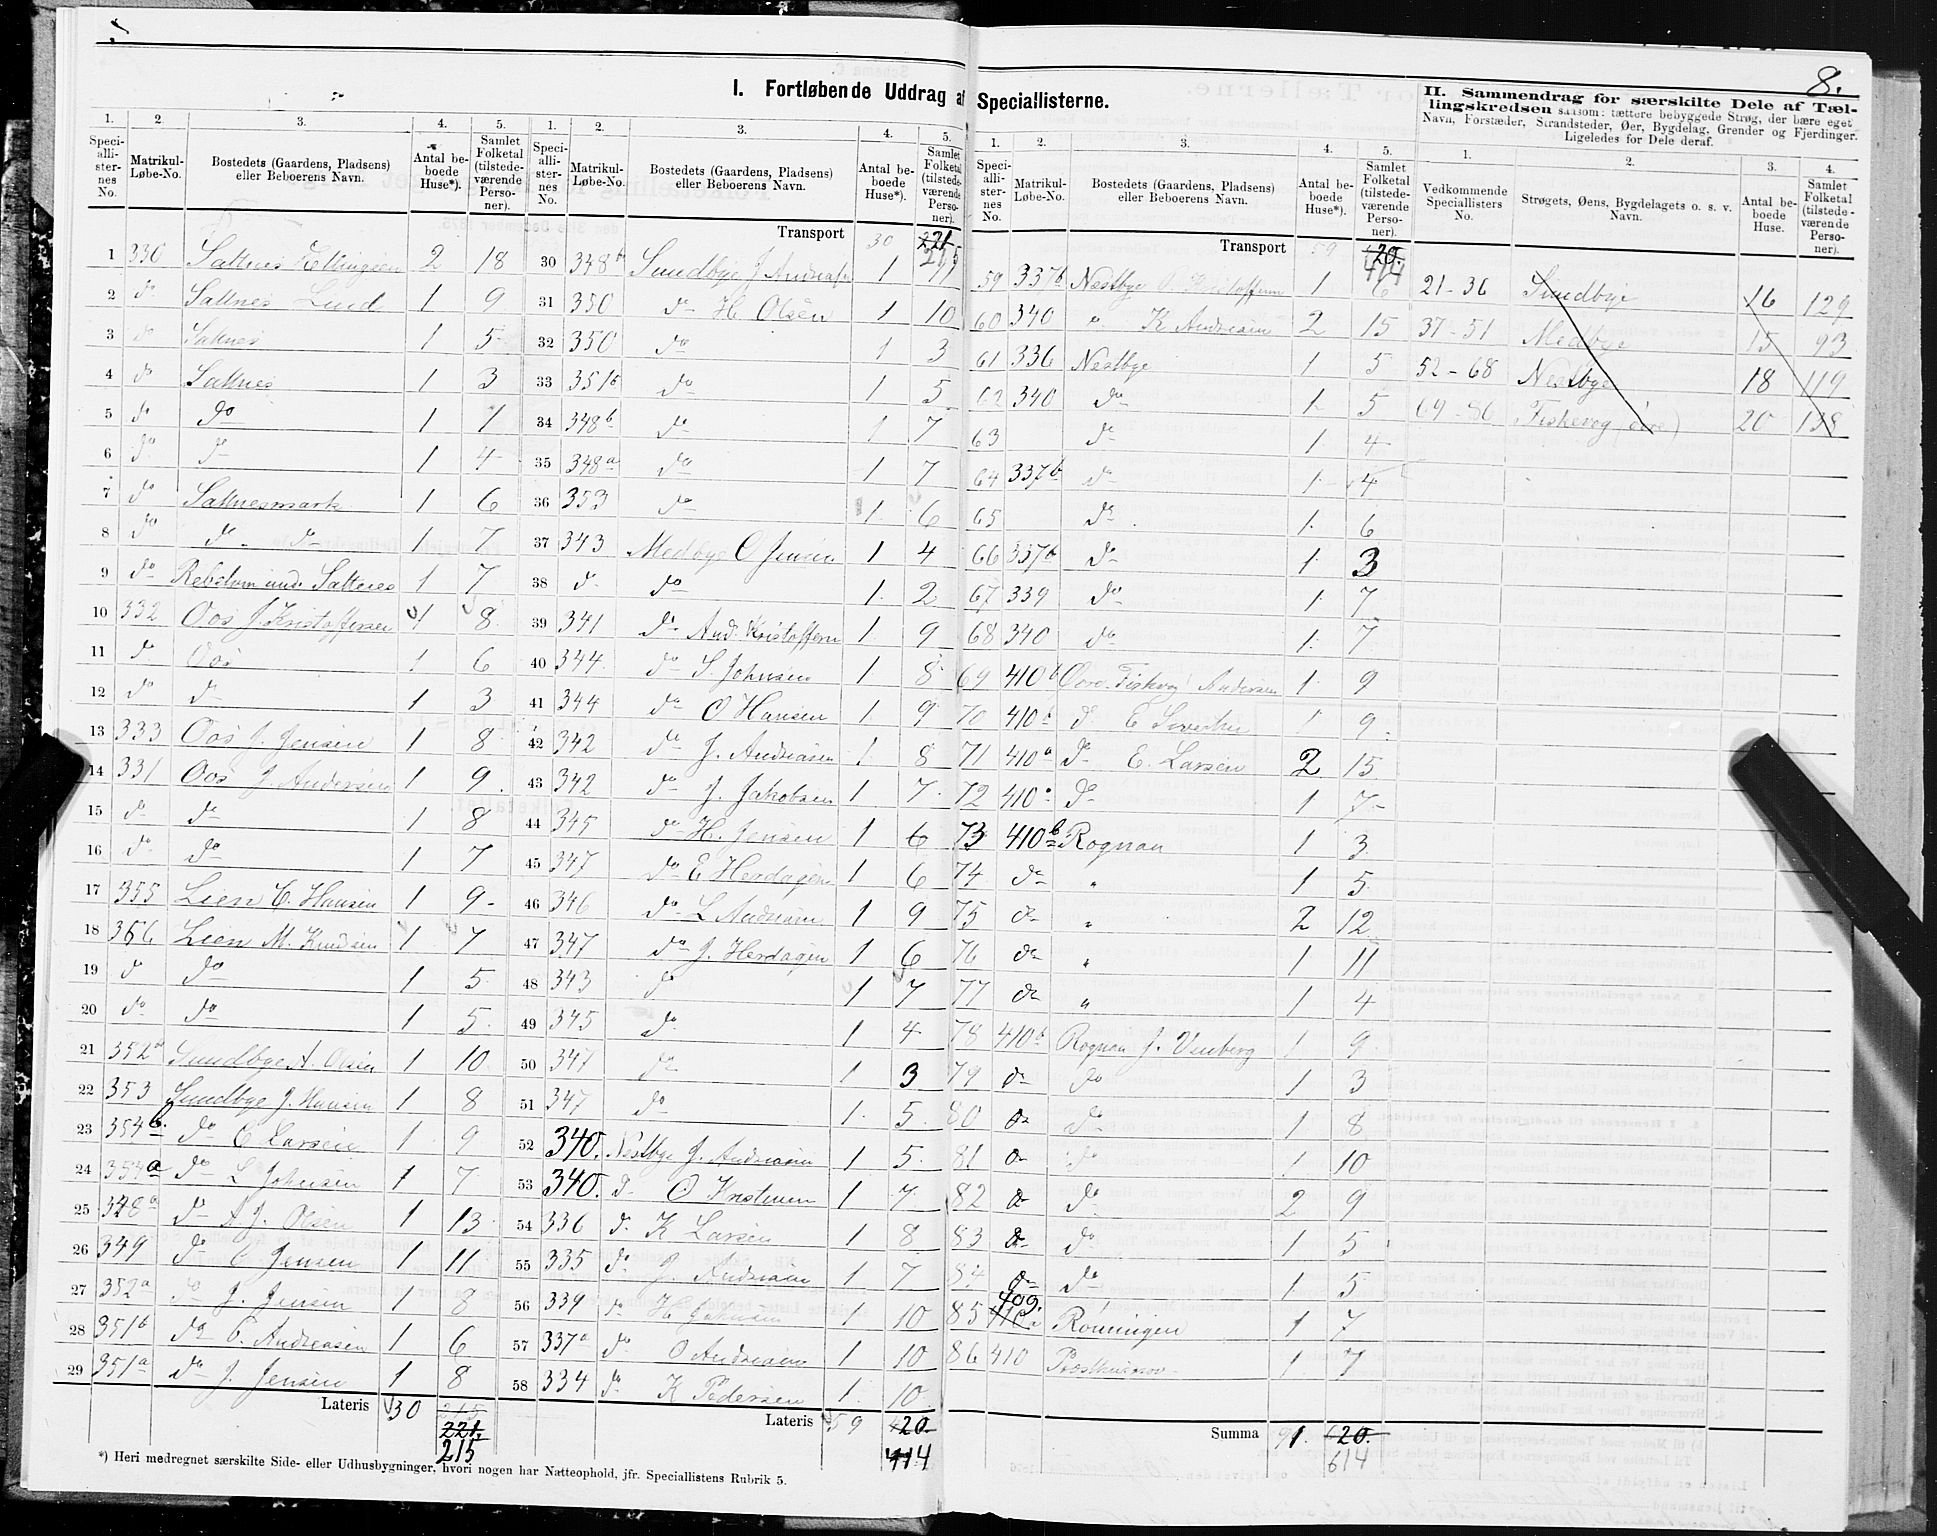 8.
I. Fortløbende Uddrag af Speciallisterne.
II. Sammendrag for særskilte Dele af Tællingskredsen saasom: tættere bebyggede Strøg, der bære eget
Navn, Forstæder, Strandsteder, Øer, Bygdelag, Grender og Fjerdinger.
Ligeledes for Dele deraf.
1. 2. 3. 4. 5.
Speciallisternes No. Matrikul-Løbe-No. Bostedets (Gaardens, Pladsens) eller Beboerens Navn. Antal beboede Huse*). Samlet Folketal (tilstedeværende Personer).
1 330 Saltnes Ellingsen 2 18
2 do Saltnes Lund 1 9
3 do Saltnes 1 5
4 do Saltnes 1 3
5 do do 1 7
6 do do 1 4
7 do Saltnesmark 1 6
8 do do do 1 7
9 do Saltnes 1 7
10 332 Oos J. Kristoffersen 1 8
11 do Oos 1 6
12 do do 1 3
13 333 Oos J. Jensen 1 8
14 331 Oos J. Andersen 1 9
15 do do 1 8
16 do do 1 7
17 355 Lien C. Hansen 1 9
18 356 Lien M. Knudsen 1 7
19 do do 1 5
20 do do 1 5
21 352a Sundbye A. Olsen 1 10
22 353 Sundbye J. Hansen 1 8
23 354b do C Larsen 1 9
24 354a do L Johnsen 1 7
25 348a do A J. Olsen 1 13
26 349 do C Jensen 1 11
27 352a do J. Jensen 1 8
28 351b do P. Andreasen 1 6
29 351a do J. Jensen 1 8
Lateris 30 215
221.
215
*) Heri medregnet særskilte Side- eller Udhusbygninger, hvori nogen har Natteophold, jfr. Speciallistens Rubrik 5.
1. 2. 3. 4. 5.
Speciallisternes No. Matrikul-Løbe-No. Bostedets (Gaardens, Pladsens) eller Beboerens Navn. Antal beboede Huse*). Samlet Folketal (tilstedeværende Personer).
Transport 30 221
215
30 348b Sundbye J Andreasen 1 11
31 350 do H. Olsen 1 10
32 350 do 1 3
33 351b do 1 5
34 348b do 1 7
35 348a do 1 7
36 353 do 1 6
37 343 Medbye O Jensen 1 4
38 do do 1 2
39 341 do And. Kristoffersen 1 9
40 344 do S. Johnsen 1 8
41 344 do O Hansen 1 9
42 342 do J. Andreasen 1 8
43 342 do J. Jakobsen 1 7
44 345 do H. Jensen 1 6
45 347 do E Herdagen 1 6
46 346 do L Andreasen 1 9
47 347 do J. Herdagen 1 6
48 343 do 1 7
49 345 do 1 4
50 347 do 1 3
51 347 do 1 5
52 340. Nestbye J. Andreasen 1 5
53 340. do O Kristensen 1 7
54 336 do K Larsen 1 8
55 335 do J. Andreasen 1 7
56 339 do H Johnsen 1 10
57 337a do O Andreasen 1 10
58 334 do K Pedersen 1 10
Lateris 59 420
414
1. 2. 3. 4. 5.
Speciallisternes No. Matrikul-Løbe-No. Bostedets (Gaardens, Pladsens) eller Beboerens Navn. Antal beboede Huse*). Samlet Folketal (tilstedeværende Personer).
Transport 59 420.
414
59 337b Nestbye Kristoffersen 1 6
60 340 " K Andreasen 2 15
61 336 Nestbye 1 5
62 340 do 1 5
63 do 1 4
64 337b do 1 4
65 do 1 6
66 337b do 1 3
67 339 do 1 7
68 340 do 1 7
69 410b Andersen 1 9
70 410b do E 1 9
71 410a do E. Larsen 2 15
72 410a do 1 7
73 410b Rognan 1 3
74 do " 1 5
75 do " 2 12
76 do " 1 11
77 do " 1 4
78 410b Rognan J. Venberg 1 9
79 do do 1 3
80 do do 1 8
81 do do 1 10
82 do do 2 9
83 do do 1 5
84 do do 1 5
85 410a 409. Rönningen 1 7
86 410 1 7
Summa 91. 620.
614
1. 2. 3. 4.
Vedkommende Speciallisters No. Strøgets, Øens, Bygdelagets o. s. v. Navn. Antal beboede Huse. Samlet Folketal (tilstedeværende Personer).
21-36 Sundbye 16 129
37-51 Medbye 15 93
52-68 Nestbye 18 119
69-86 Fiskevog 20 138